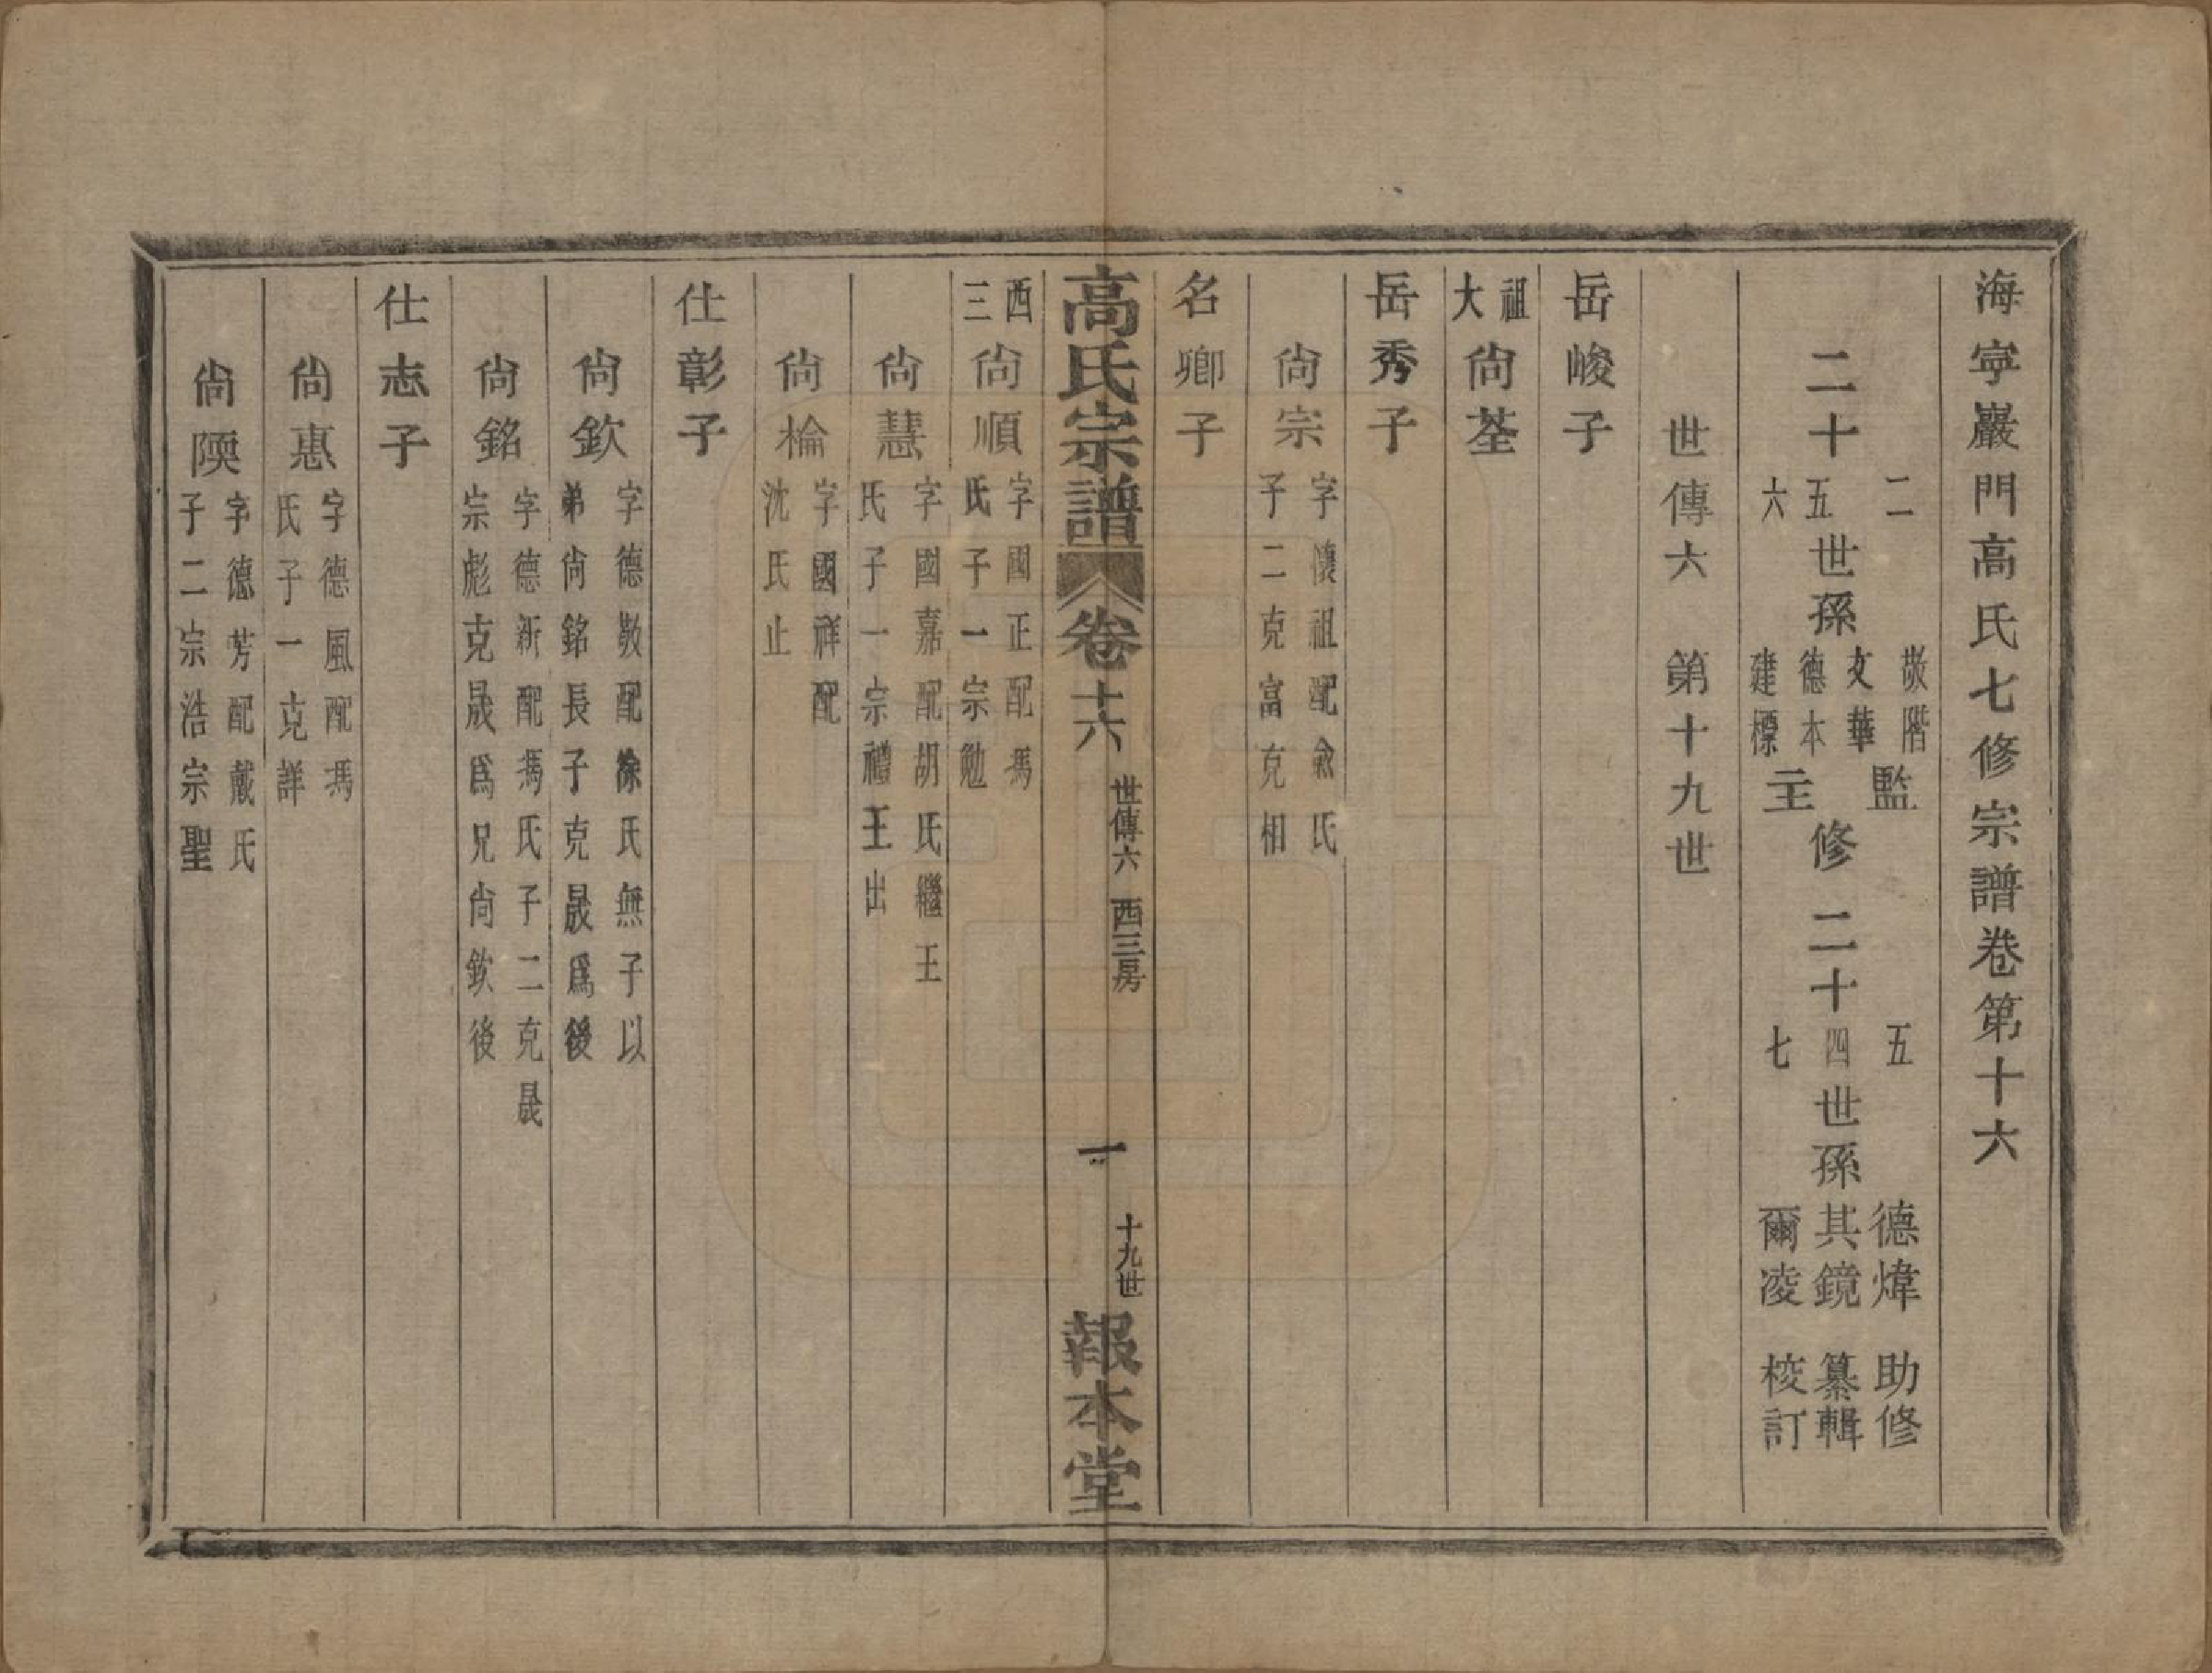 海寧巖門高氏七修宗譜卷第十六
二十二五六世孫敬階文華德本建標監主修 二十五四七世孫德煒其鏡爾凌 助修纂輯校訂
世傳六 第十九世
岳峻子
祖大尙荃
岳秀子
尙宗 字懷祖配俞氏
子二克富克相
名卿子
高氏宗譜 卷十六 世傳六 西三房 一 十九世 報本堂
西三尙順 字國正配馮
氏子一宗勉
尙慧 字國嘉配胡氏繼王
氏子一宗禮王出
尙棆 字國祥配
沈氏止
仕彰子
尙欽 字德敬配徐氏無子以
弟尙銘長子克晟爲後
尙銘 字德新配馮氏子二克晟
宗彪克晟爲兄尙欽後
仕志子
尙惠 字德風配馮
氏子一克詳
尙陾 字德芳配戴氏
子二宗浩宗聖